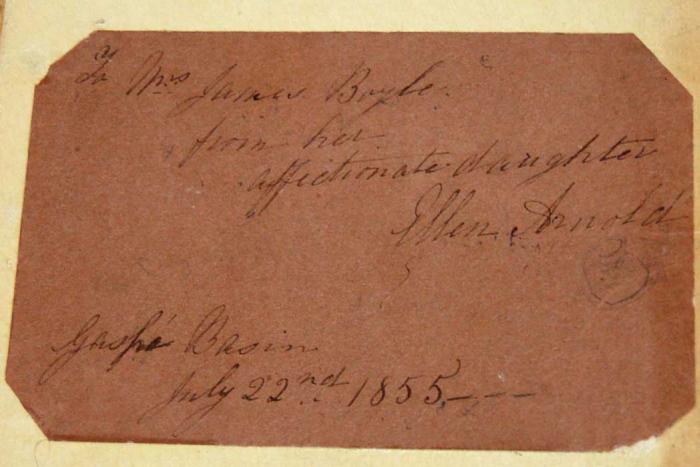 To Mrs James Boyle
from her
affectionate daughter
Ellen Arnold
Gaspé Basin
July 22nd 1855.---